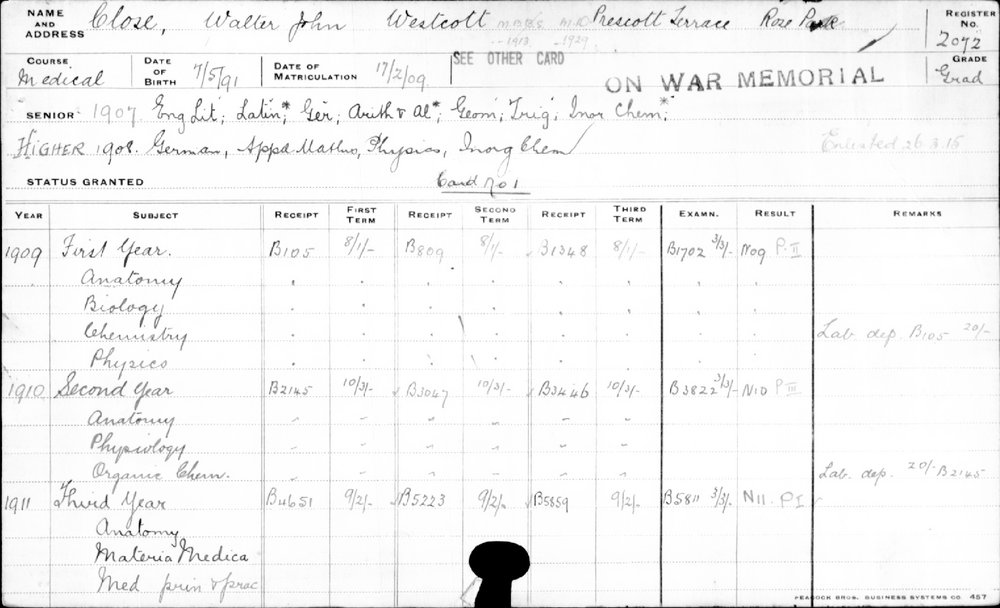 NAME AND ADDRESS Close, Walter John Westcott M.B.B.S. 1913 M.D. 1929 Prescott Terrace Rose Park REGISTER No. 2072
COURSE Medical DATE OF BIRTH 7/5/91 DATE OF MATRICULATION 17/2/09 SEE OTHER CARD ON WAR MEMORIAL GRADE Grad
SENIOR 1907 Eng Lit; Latin*; Ger; Arith & Al*; Geom; Trig; Inor Chem*;
HIGHER 1908. German, Appd Maths, Physics, Inorg Chem Enlisted 26.3.15
STATUS GRANTED Card No 1
YEAR SUBJECT RECEIPT FIRST TERM RECEIPT SECOND TERM RECEIPT THIRD TERM EXAMN. RESULT REMARKS
1909 First Year. B105 8/1/- B809 8/1/- B1348 8/1/- B1702 3/3/- No9 P.II
Anatomy
Biology
Chemistry Lab. dep. B105 20/-
Physics
1910 Second Year B2145 10/3/- B3047 10/3/- B3446 10/3/- B3822 3/3/- N10 P III
Anatomy
Physiology
Organic Chem. Lab. dep. 20/- B2145
1911 Third Year B4651 9/2/- B5223 9/2/- B5559 9/2/- B5811 3/3/- N11. P I
Anatomy
Materia Medica
Med prin & prac
PEACOCK BROS. BUSINESS SYSTEMS CO 457